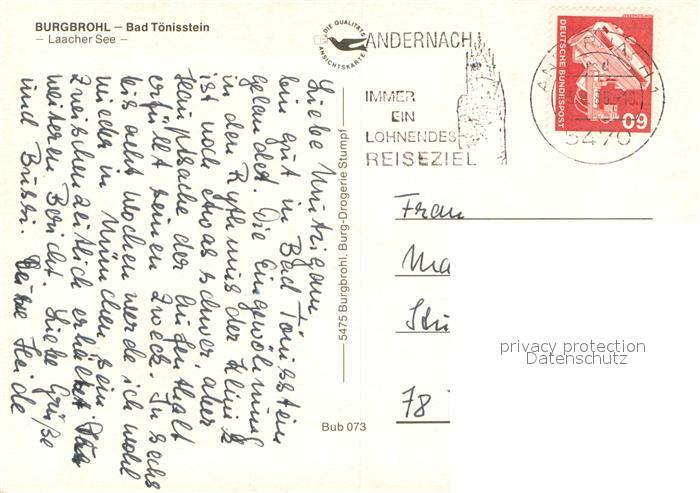 BURGBROHL – Bad Tönisstein
– Laacher See –
DIE QUALITÄTS
ANSICHTSKARTE
ANDERNACH
IMMER
EIN
LOHNENDES
REISEZIEL
ANDERNACH 1
5470
DEUTSCHE BUNDESPOST
60
Liebe
bin gut in Bad Tönisstein
gelandet. Die Eingewöhnung
in den Rythmus der Klinik
ist noch etwas schwer, aber
Hauptsache der Aufenthalt
erfüllt seinen Zweck. In sechs
bis acht Wochen werde ich wohl
wieder in München sein.
Zwischenzeitlich erhaltet Ihr
weiteren Bericht. Liebe Grüße
und Bussi. Deine Heide
5475 Burgbrohl, Burg-Drogerie Stumpf
Bub 073
Frau
Ma
78
privacy protection
Datenschutz